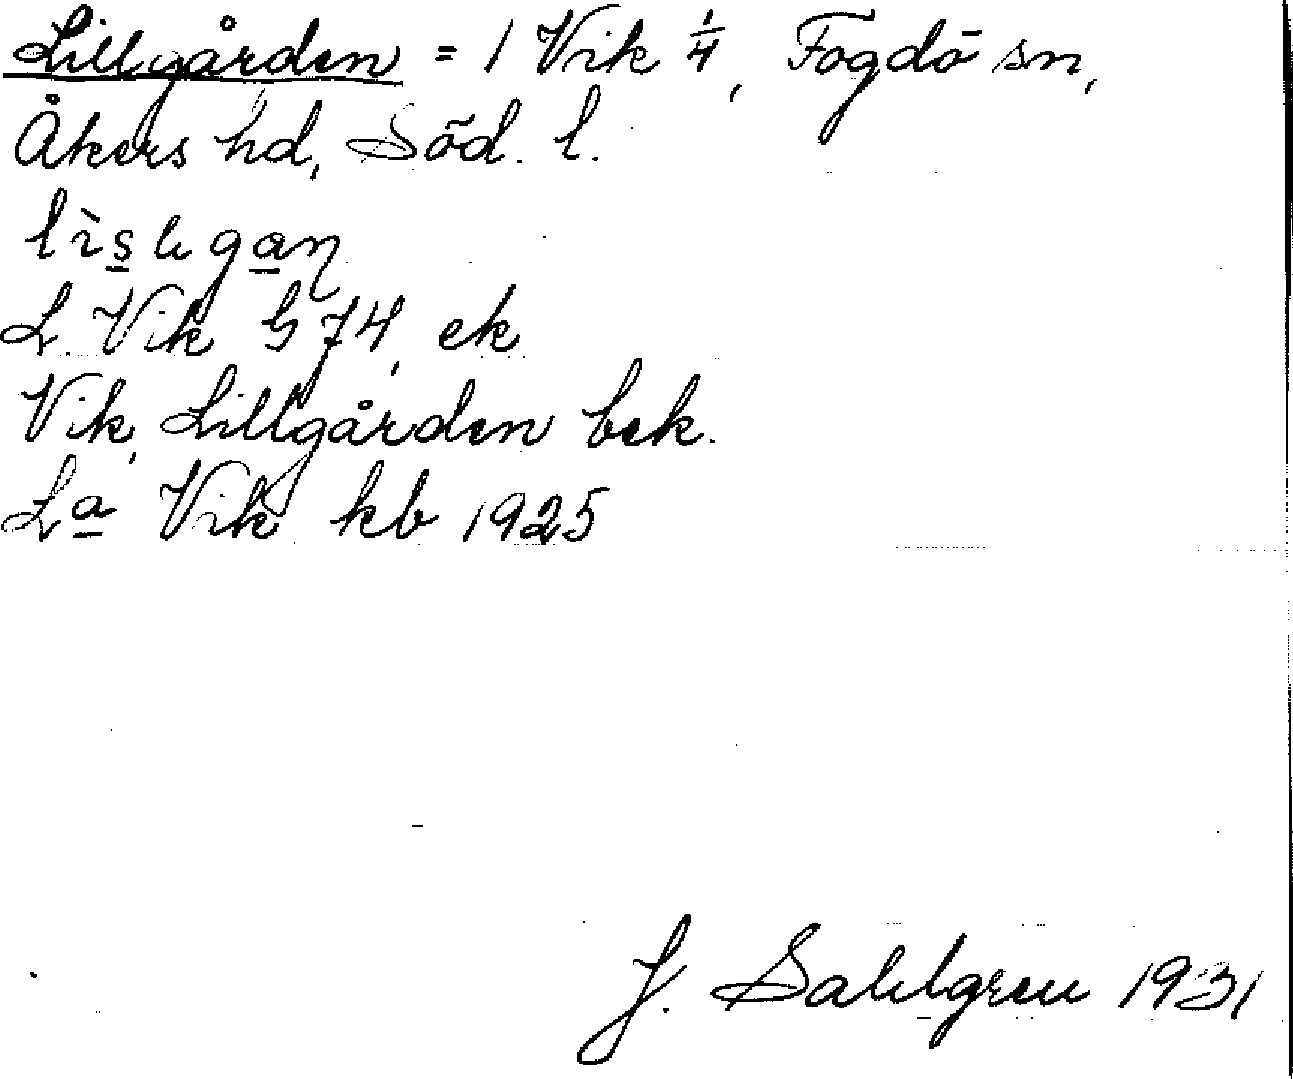 Lillgården = 1 Vik 1/4, Fogdö sn,
Åkers hd, Söd. l.
L. Vik G 74, ek
Vik, Lillgården bek.
La Vik kb 1925
J. Sahlgren 1931